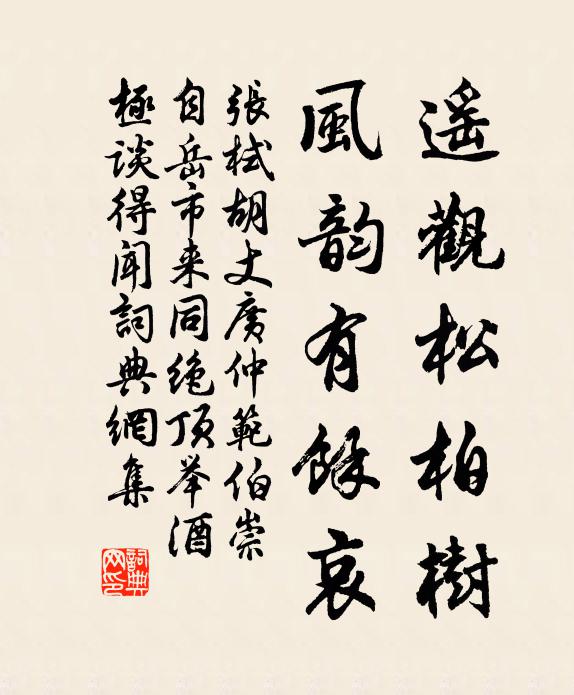 遥觀松柏樹
風韵有餘哀
張栻胡丈廣仲範伯崇
自岳市来同绝顶举酒
極谈得闻詞典網集
詞典网印